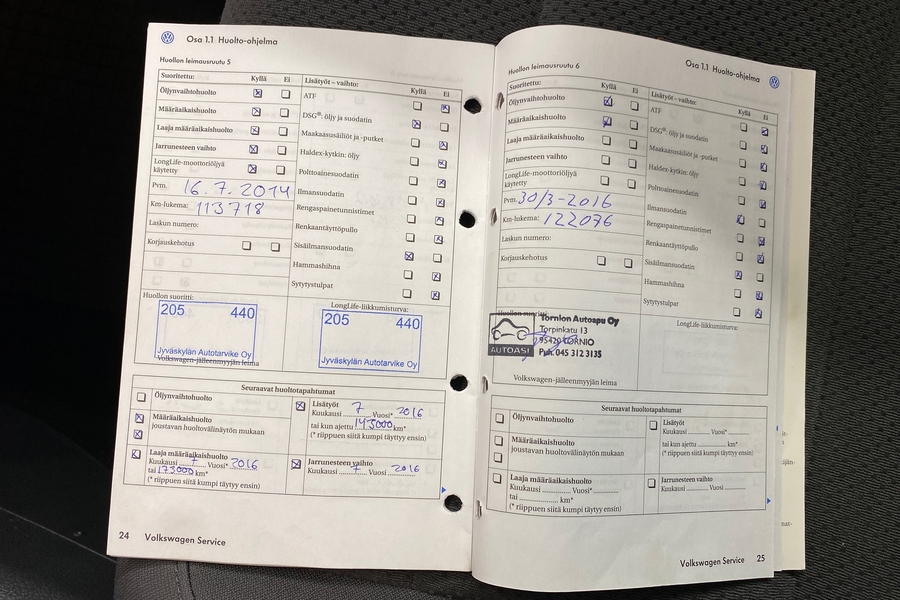 Osa 1.1 Huolto-ohjelma
Huollon leimausruutu 5
Suoritettu: Kyllä Ei
Öljynvaihtohuolto
Määräaikaishuolto
Laaja määräaikaishuolto
Jarrunesteen vaihto
LongLife-moottoriöljyä
käytetty
Pvm. 16.7.2014
Km-lukema: 113718
Laskun numero:
Korjauskehotus
Lisätyöt – vaihto: Kyllä Ei
ATF
DSG®: öljy ja suodatin
Maakaasusäiliöt ja -putket
Haldex-kytkin: öljy
Polttoainesuodatin
Ilmansuodatin
Rengaspainetunnistimet
Renkaantäyttöpullo
Sisäilmansuodatin
Hammashihna
Sytytystulpat
Huollon suoritti:
205 440
Jyväskylän Autotarvike Oy
Volkswagen-jälleenmyyjän leima
LongLife-liikkumisturva:
205 440
Jyväskylän Autotarvike Oy
Seuraavat huoltotapahtumat
Öljynvaihtohuolto
Määräaikaishuolto
joustavan huoltovälinäytön mukaan
Laaja määräaikaishuolto
Kuukausi 7 Vuosi* 2016
tai 173000 km*
(* riippuen siitä kumpi täytyy ensin)
Lisätyöt
Kuukausi 7 Vuosi* 2016
tai kun ajettu 145000 km*
(* riippuen siitä kumpi täytyy ensin)
Jarrunesteen vaihto
Kuukausi 7 Vuosi 2016
24 Volkswagen Service
Osa 1.1 Huolto-ohjelma
Huollon leimausruutu 6
Suoritettu: Kyllä Ei
Öljynvaihtohuolto
Määräaikaishuolto
Laaja määräaikaishuolto
Jarrunesteen vaihto
LongLife-moottoriöljyä
käytetty
Pvm. 30/3-2016
Km-lukema: 122076
Laskun numero:
Korjauskehotus
Lisätyöt – vaihto: Kyllä Ei
ATF
DSG®: öljy ja suodatin
Maakaasusäiliöt ja -putket
Haldex-kytkin: öljy
Polttoainesuodatin
Ilmansuodatin
Rengaspainetunnistimet
Renkaantäyttöpullo
Sisäilmansuodatin
Hammashihna
Sytytystulpat
Huollon suoritti:
AUTOASI
Tornion Autoapu Oy
Torpinkatu 13
95420 TORNIO
Puh. 045 312 3135
Volkswagen-jälleenmyyjän leima
LongLife-liikkumisturva:
Seuraavat huoltotapahtumat
Öljynvaihtohuolto
Määräaikaishuolto
joustavan huoltovälinäytön mukaan
Laaja määräaikaishuolto
Kuukausi Vuosi*
tai km*
(* riippuen siitä kumpi täytyy ensin)
Lisätyöt
Kuukausi Vuosi*
tai kun ajettu km*
(* riippuen siitä kumpi täytyy ensin)
Jarrunesteen vaihto
Kuukausi Vuosi
Volkswagen Service 25